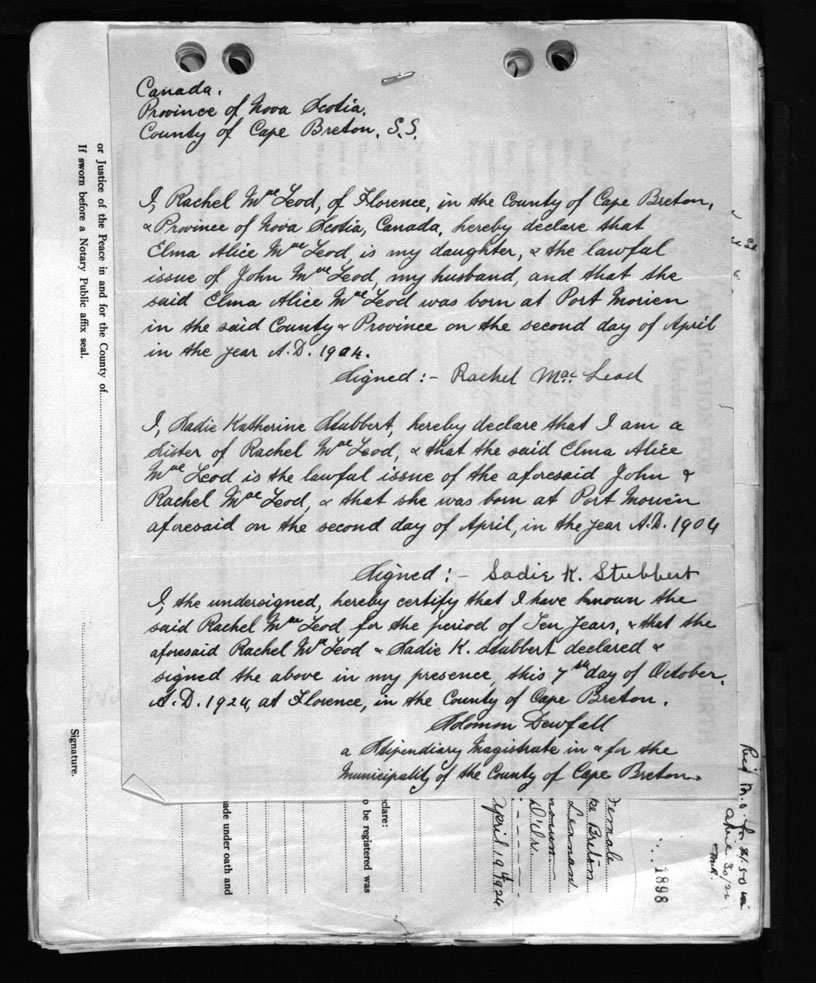 Canada.
Province of Nova Scotia.
County of Cape Breton. S.S.
I, Rachel Mac Leod, of Florence, in the County of Cape Breton,
& Province of Nova Scotia, Canada, hereby declare that
Elma Alice Mac Leod, is my daughter, & the lawful
issue of John Mac Leod, my husband, and that the
said Elma Alice Mac Leod was born at Port Morien
in the said County & Province on the second day of April
in the year A.D. 1904.
Signed :- Rachel Mac Leod
I, Sadie Katherine Stubbert, hereby declare that I am a
sister of Rachel Mac Leod, & that the said Elma Alice
Mac Leod is the lawful issue of the aforesaid John &
Rachel Mac Leod, & that she was born at Port Morien
aforesaid on the second day of April, in the year A.D. 1904
Signed :- Sadie K. Stubbert
I, the undersigned, hereby certify that I have known the
said Rachel Mac Leod for the period of Ten years, & that the
aforesaid Rachel Mac Leod & Sadie K. Stubbert declared &
signed the above in my presence, this 7th day of October,
A.D. 1924, at Florence, in the County of Cape Breton.
Solomon Dewfall
a Stipendiary Magistrate in & for the
Municipality of the County of Cape Breton.
or Justice of the Peace in and for the County of
If sworn before a Notary Public affix seal.
Signature.
ade under oath and
o be registered was
clare:
April 19
1924
Breton
1898
April 30/2